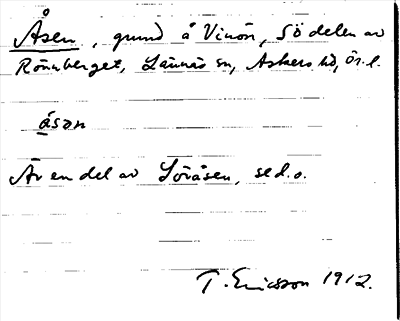 Åsen, grund å Vinön, Sö delen av
Rönnberget, Lännäs sn, Askers hd, Ör. l.
åsan
Är en del av Söråsen, se d. o.
T. Ericsson 1912.